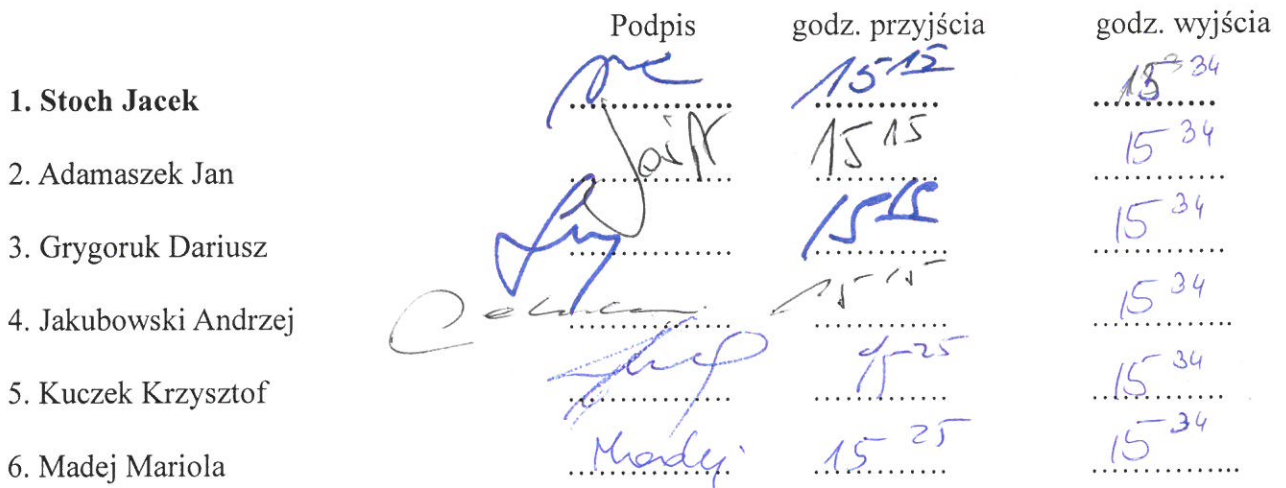 Podpis godz. przyjścia godz. wyjścia
1. Stoch Jacek 15 15 15 34
2. Adamaszek Jan 15 15 15 34
3. Grygoruk Dariusz 15 15 15 34
4. Jakubowski Andrzej 15 15 15 34
5. Kuczek Krzysztof 15 25 15 34
6. Madej Mariola Madej 15 25 15 34